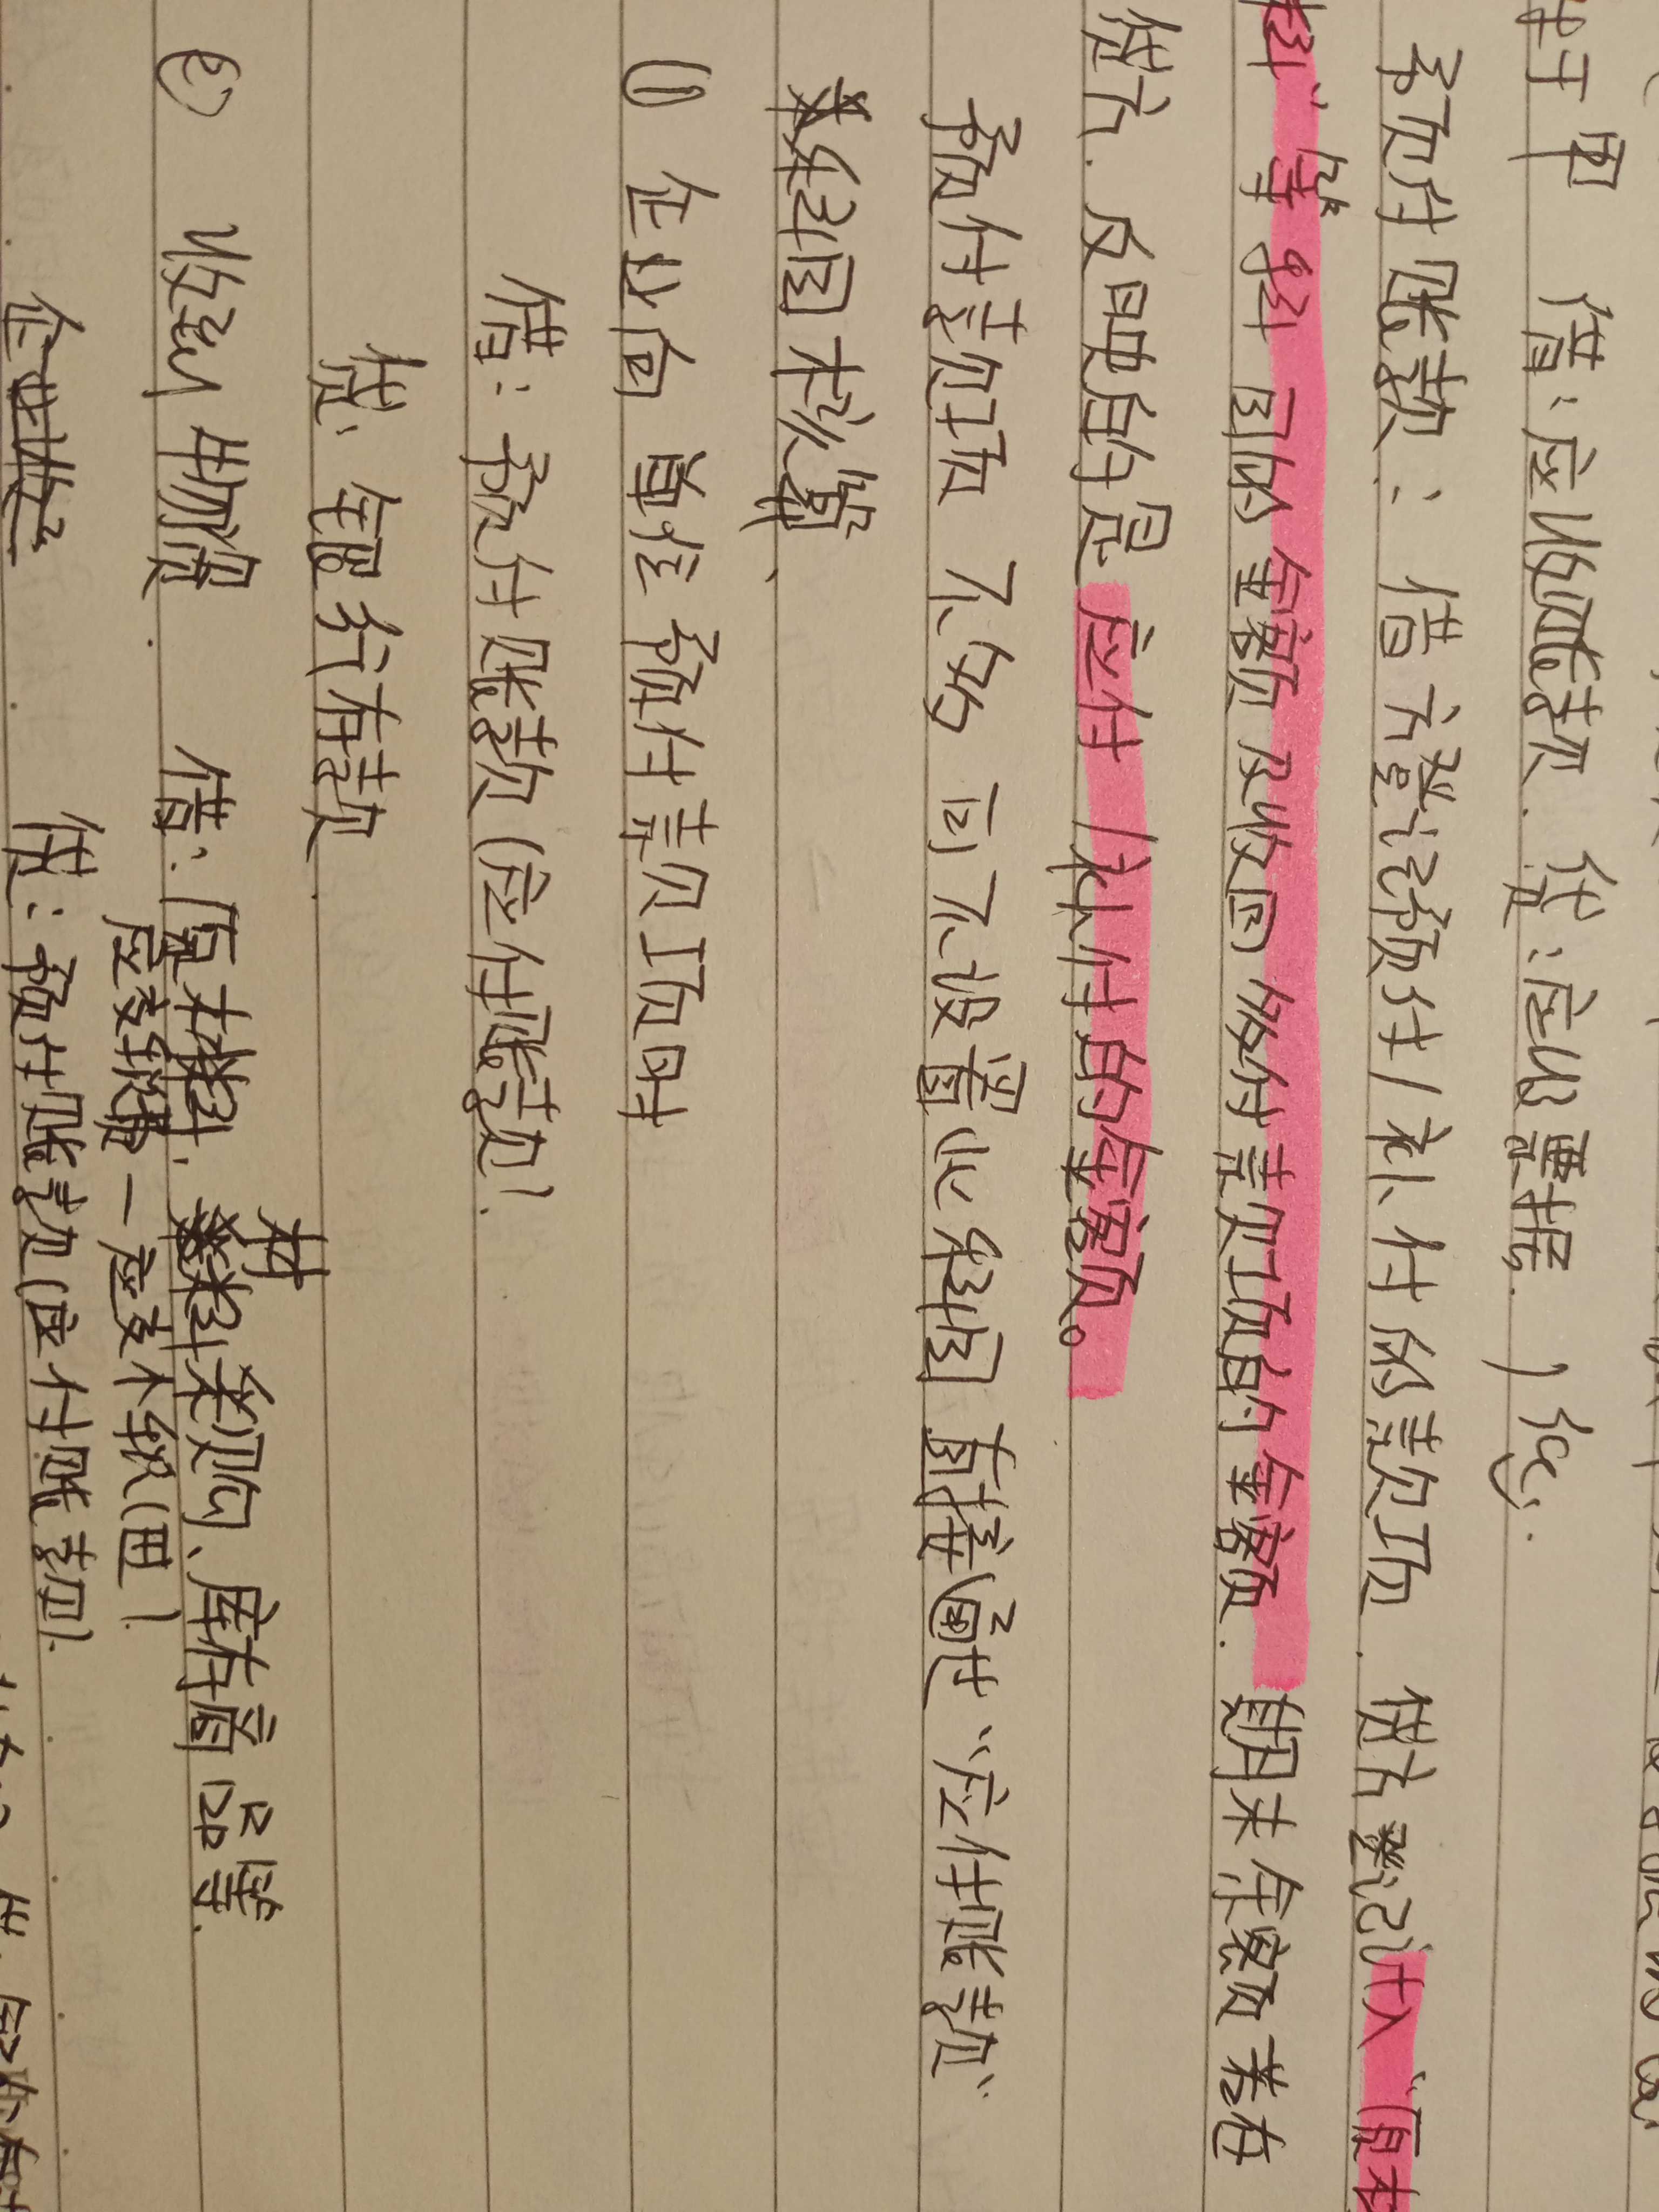 甲 借：应收账款. 贷：应收票据.
预付账款：借方登记预付/补付的款项. 贷方登记计入"原材
料"等科目的金额及收回多付款项的金额. 期末余额若在
贷方. 反映的是应付/补付的金额。
预付款项不多可不设置小科目直接通过、应付账款、
科目核算、
① 企业向真位预付款项时
借：预付账款(应付账款).
贷：银行存款.
② 收到物资. 借：原材料. 材料采购、库存商品等.
应交税费一应交个税(进).
贷：预付账款(应付账款).